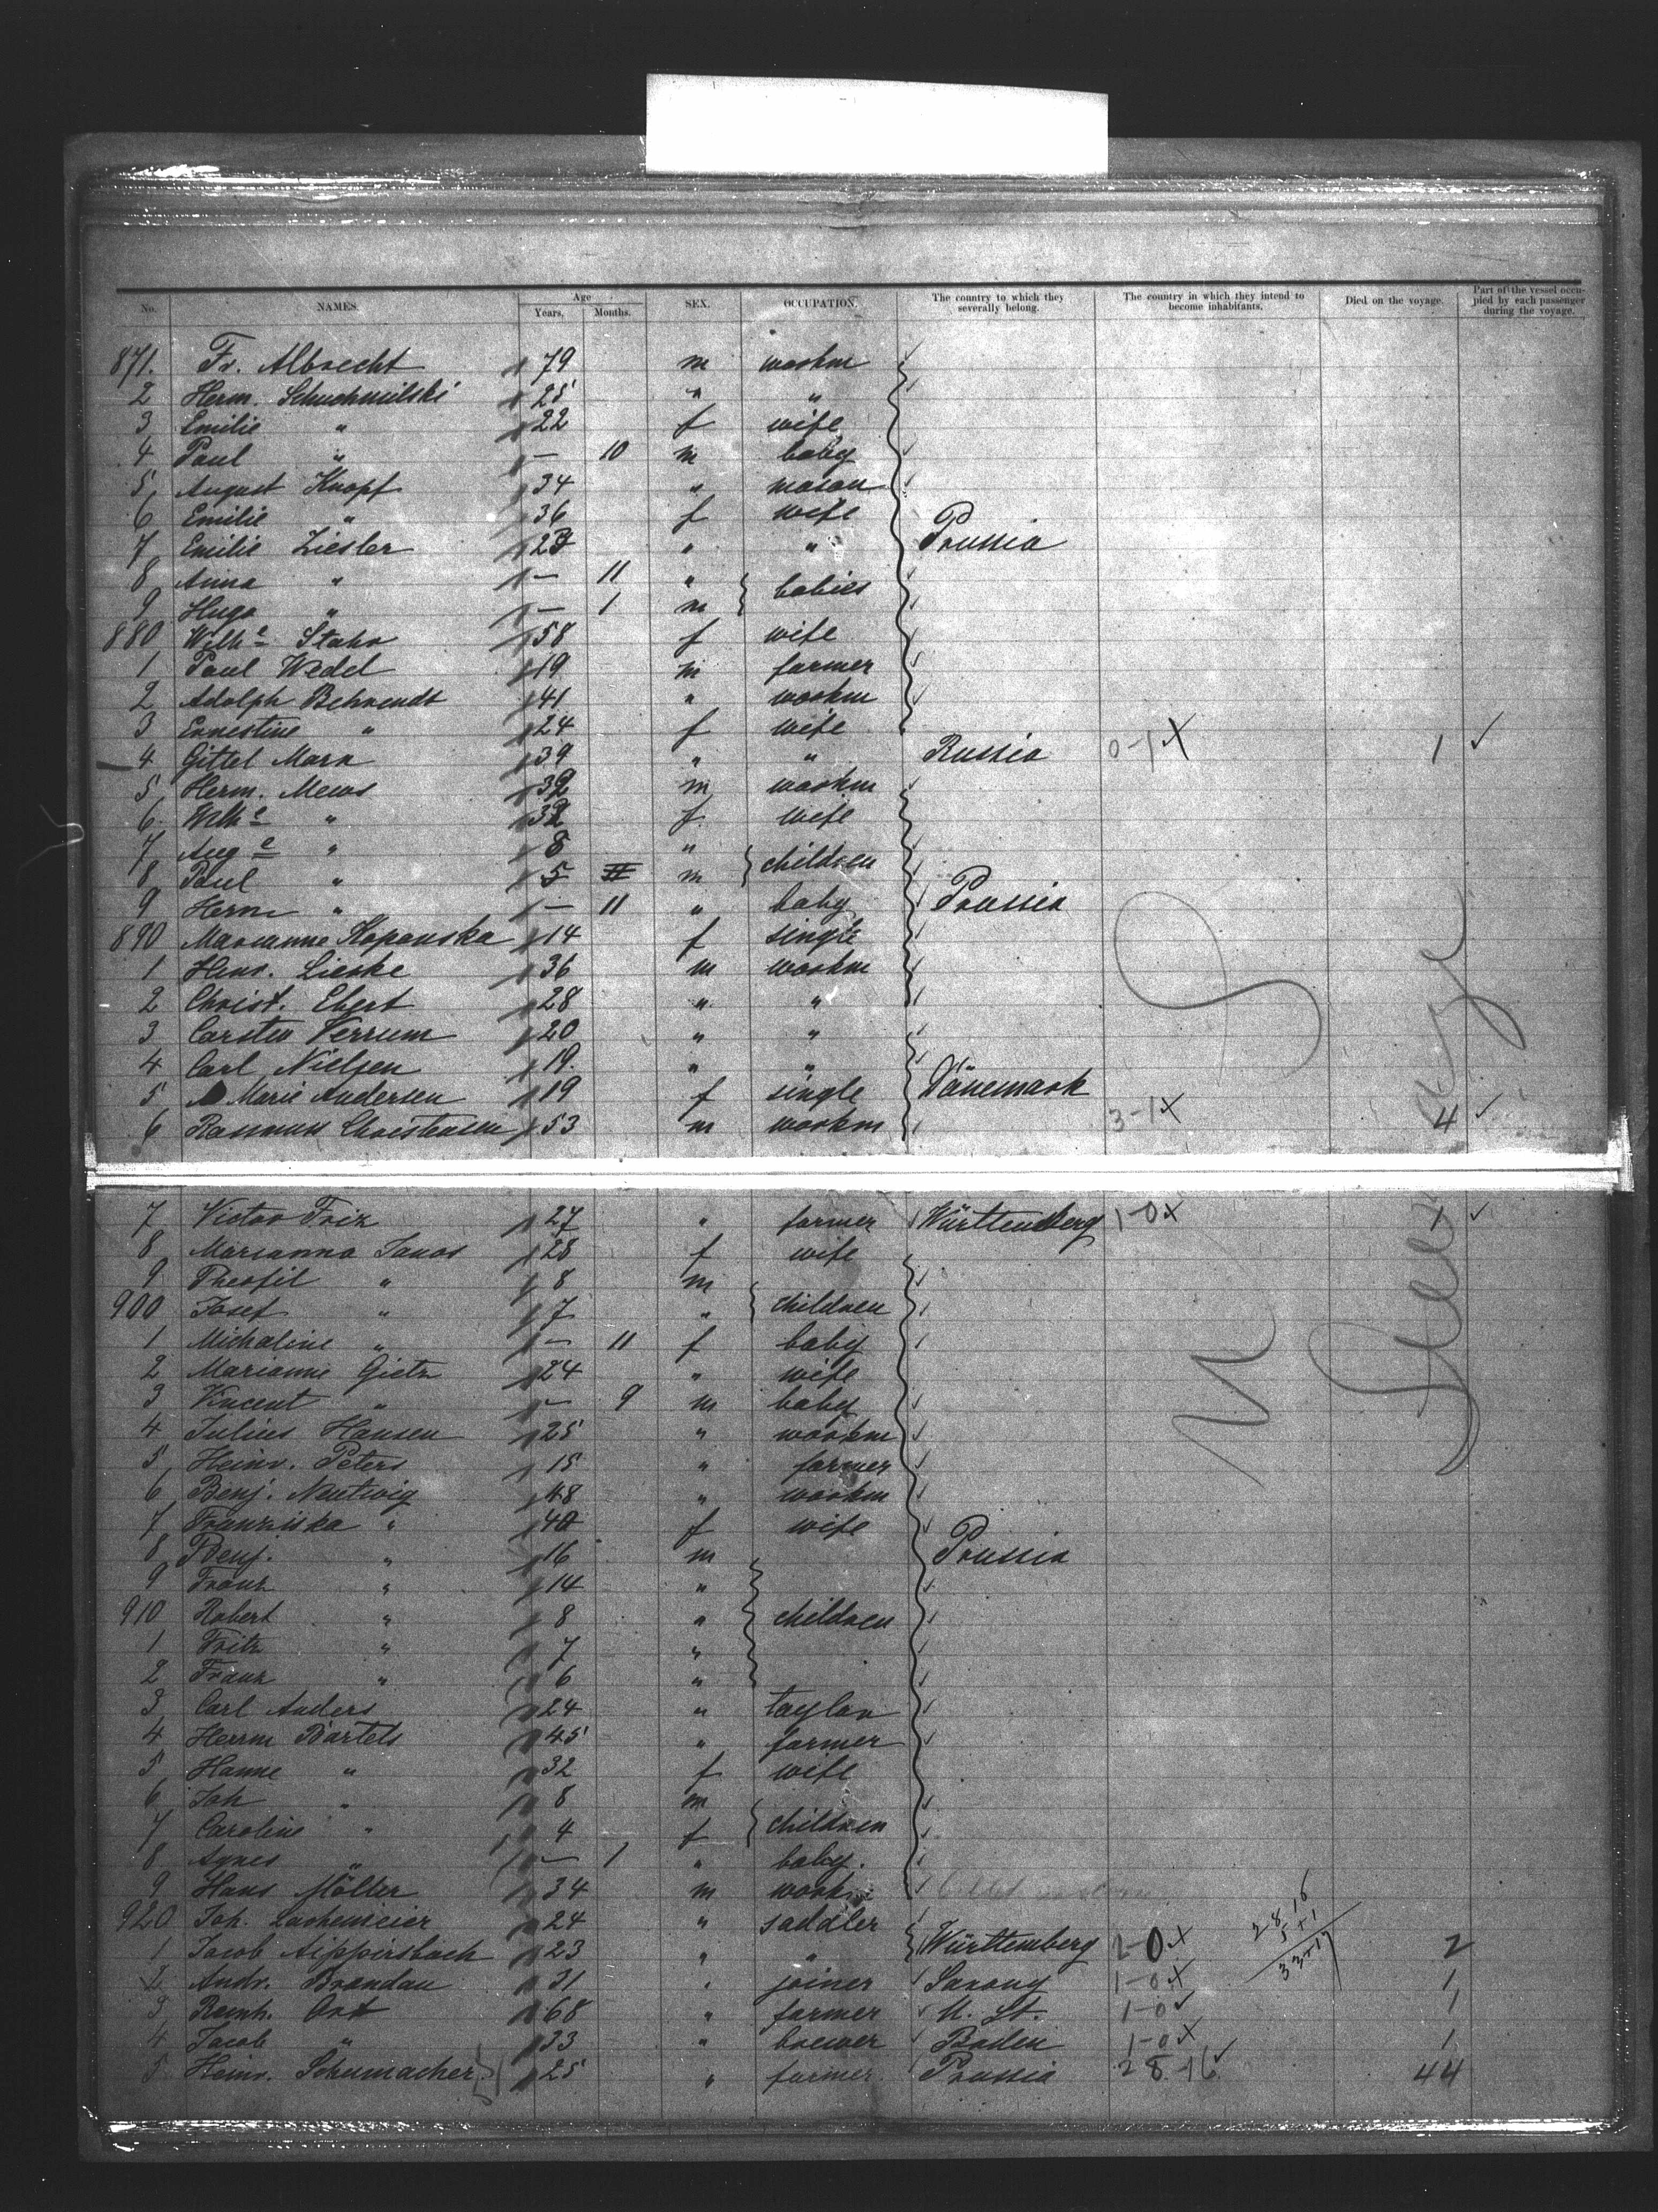 No. NAMES. Age Years. Months. SEX. OCCUPATION. The country to which they severally belong. The country in which they intend to become inhabitants. Died on the voyage. Part of the vessel occupied by each passenger during the voyage.
871. Fr. Albrecht 79 m workm
2 Herm. Schuchmilski 25 " "
3 Emilie " 22 f wife
4 Paul " — 10 m baby
5 August Knopf 34 " mason
6 Emilie " 36 f wife
7 Emilie Ziesler 23 " " Prussia
8 Anna " — 11 " babies
9 Hugo " — 1 m
880 Wilhe Stahr 58 f wife
1 Paul Wedel 19 m farmer
2 Adolph Behrendt 41 " workm
3 Ernestine " 24 f wife
4 Gittel Marx 39 " " Russia 0-1 x 1 ✓
5 Herm. Mews 32 m workm
6 Wilhe " 32 f wife
7 Auge " 8 " children
8 Paul " 5 m
9 Herm " — 11 " baby Prussia
890 Marianne Kopanska 14 f single
1 Henr. Lieske 36 m workm
2 Christ. Ebert 28 " "
3 Carsten Verrum 20 " "
4 Carl Nielsen 19 " "
5 Marie Andersen 19 f single Dänemark
6 Rasmus Christensen 53 m workm 3-1 x 4 ✓
7 Victor Frix 27 " farmer Württemberg 1-0 x 1 ✓
8 Marianna Janas 28 f wife
9 Theofil " 8 m
900 Josef " 7 " children
1 Michaline " — 11 f baby
2 Marianne Gietz 24 " wife
3 Vincent " — 9 m baby
4 Julius Hansen 25 " workm
5 Heinr. Peters 15 " farmer
6 Benj. Neutwig 48 " workm
7 Franziska " 40 f wife
8 Benj. " 16 m Prussia
9 Franz " 14 "
910 Robert " 8 " children
1 Fritz " 7 "
2 Franz " 6 "
3 Carl Anders 24 " taylor
4 Herrm Bartels 45 " farmer
5 Hanne " 32 f wife
6 Joh " 8 m
7 Caroline " 4 f children
8 Agnes " — 1 " baby.
9 Hans Möller 34 m workm
920 Joh. Lachemeier 24 " saddler
1 Jacob Aippersbach 23 " " Württemberg 2-0 x 2
2 Andr. Brandau 31 " joiner Saxony 1-0 x 1
3 Reinh. Ort 68 " farmer U. St. 1-0 ✓ 1
4 Jacob " 33 " brewer Baden 1-0 x 1
5 Heinr. Schumacher 25 " farmer Prussia 28-16 ✓ 44